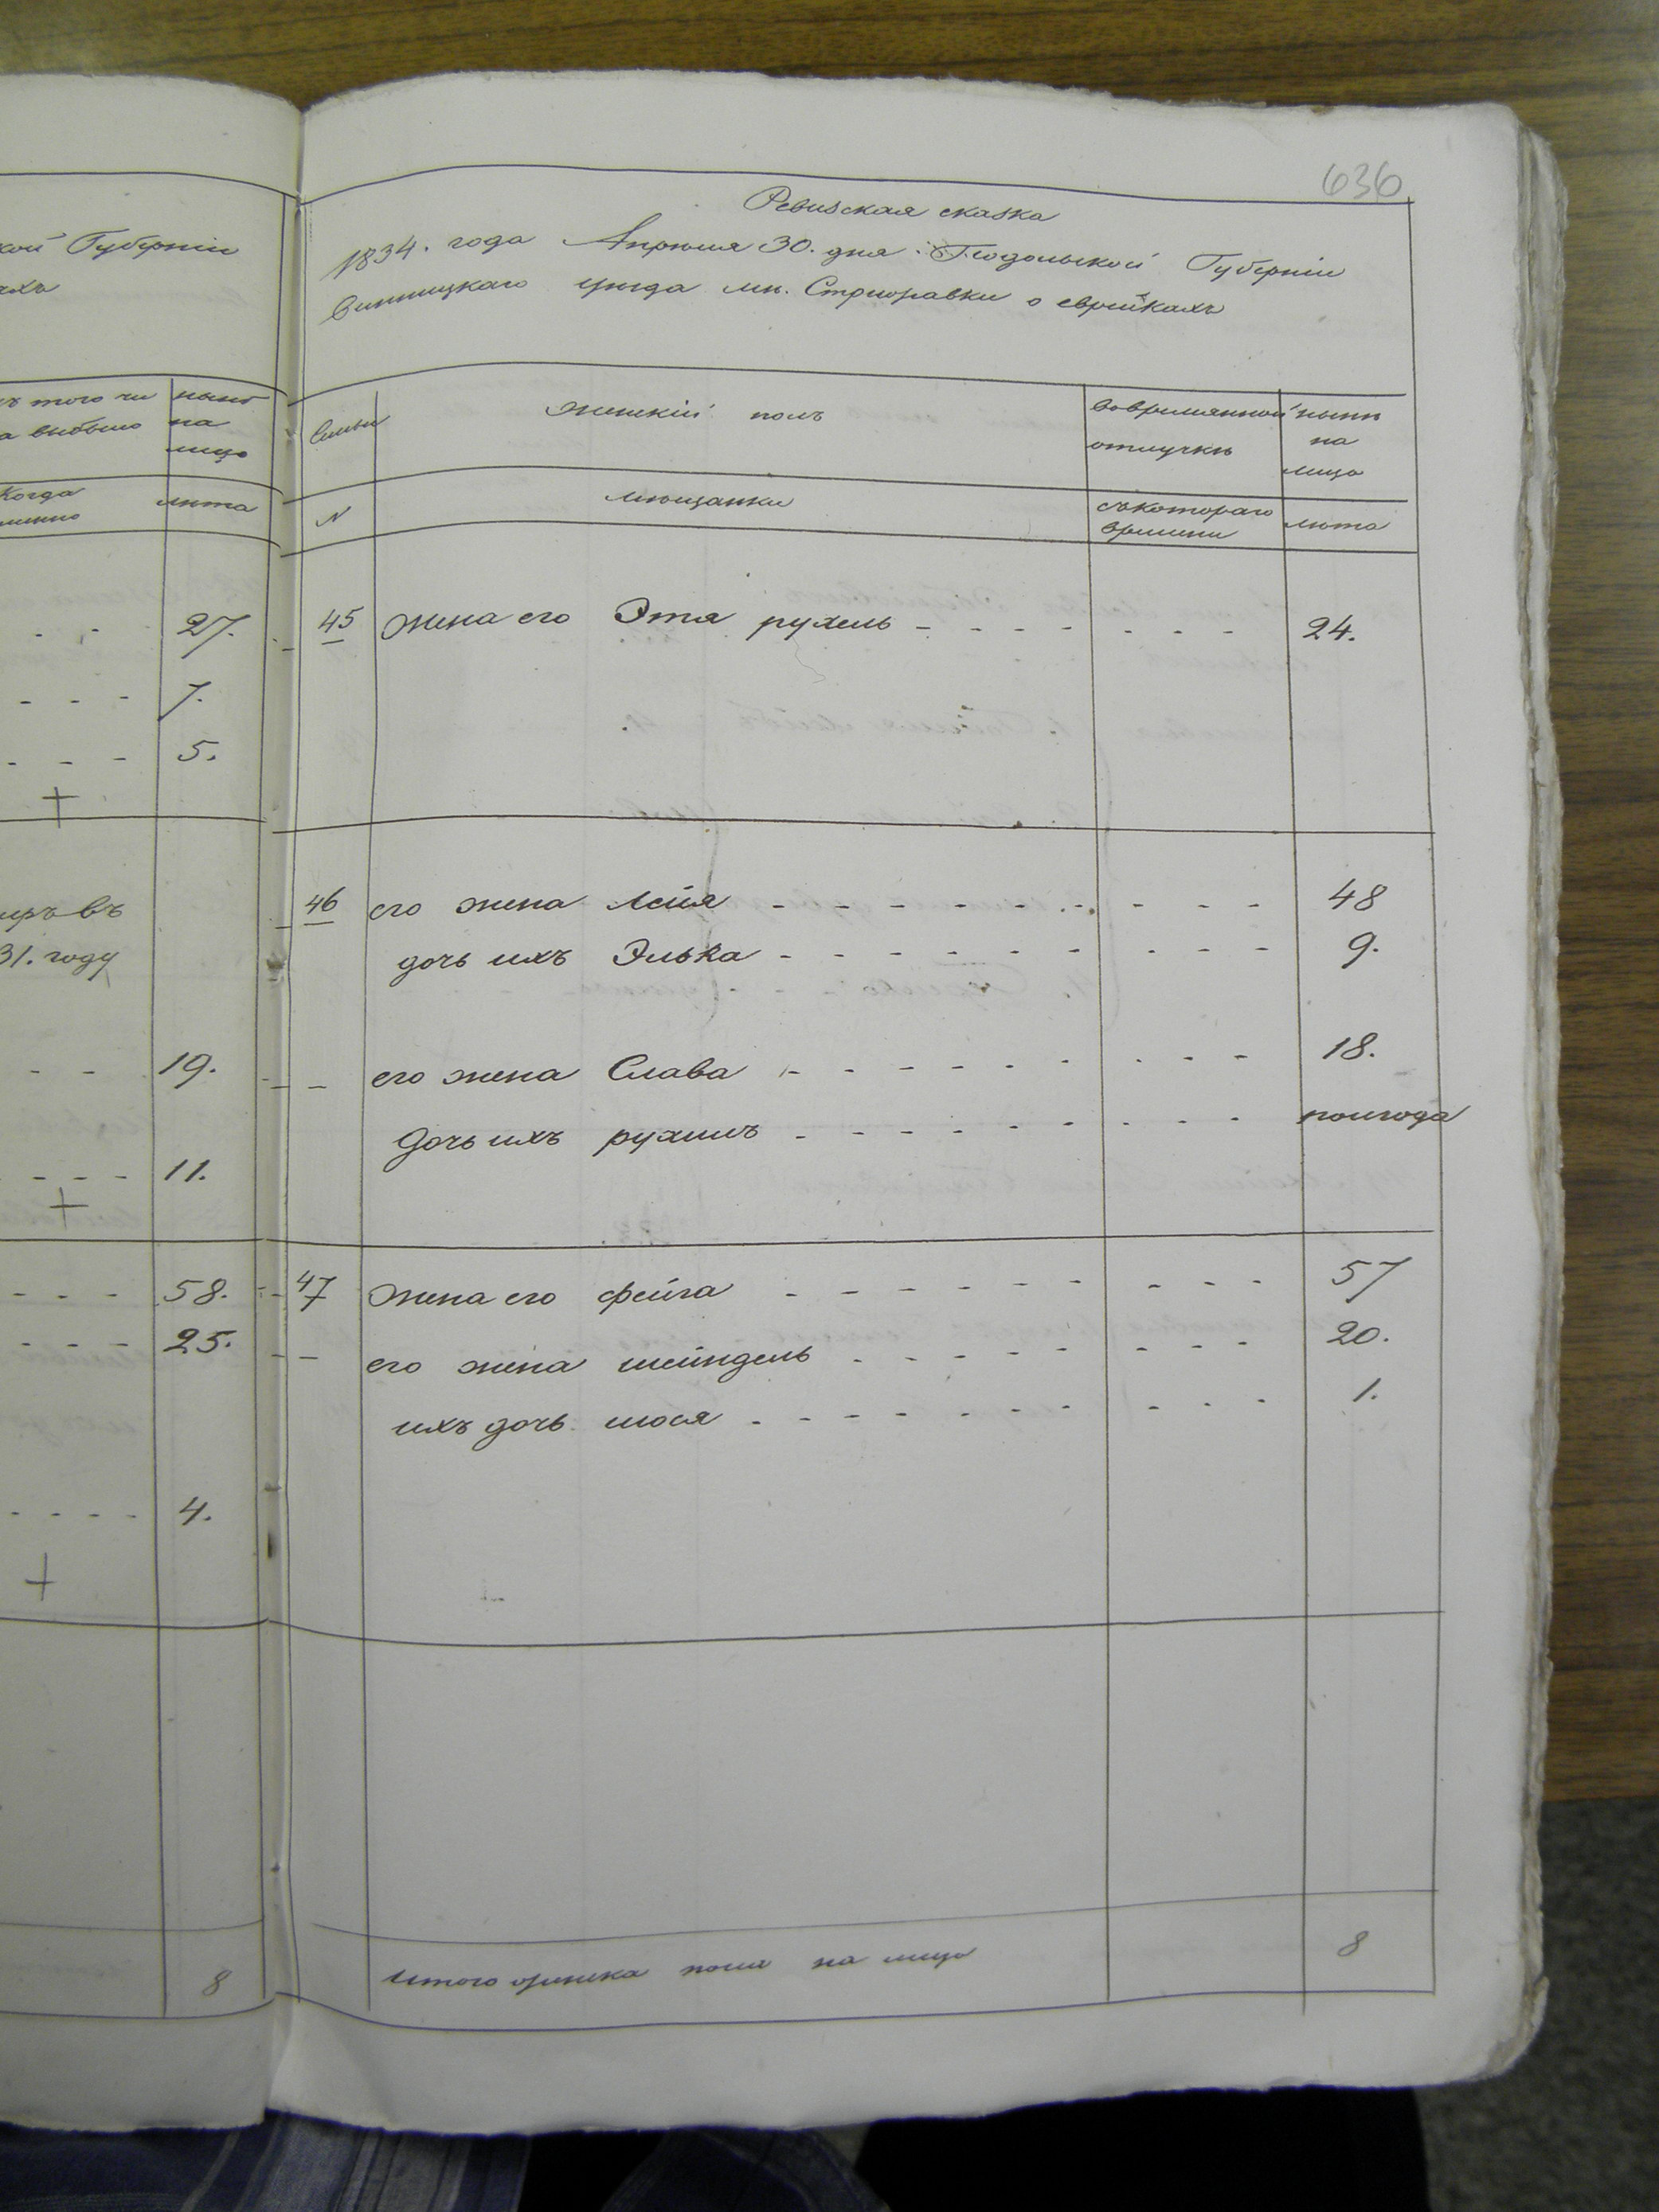 кой Губерніи
ахъ
нынѣ
на
лицо
Когда
лѣта
27.
7.
5.
31. году
19.
11.
58.
25.
4.
8
636
Ревизская сказка
1834. года Апрѣля 30. дня Подольской Губерніи
Винницкаго уѣзда мѣ. Стрижавки о еврѣйкахъ
Семьи
женскій полъ
Вовремянной отлучкѣ
нынѣ на лицо
N
мѣщанки
съкотораго времени
лѣта
45 жена его Этя рухель - - - - - - - 24.
46 его жена Лейя - - - - - - - - - 48
дочь ихъ Элька - - - - - - - - - 9.
его жена Слава - - - - - - - - 18.
дочь ихъ рухиль - - - - - - - - полгода
47 жена его фейга - - - - - - - - 57
его жена шейндель - - - - - - - - 20.
ихъ дочь шося - - - - - - - - - 1.
Итого женска пола на лицо 8